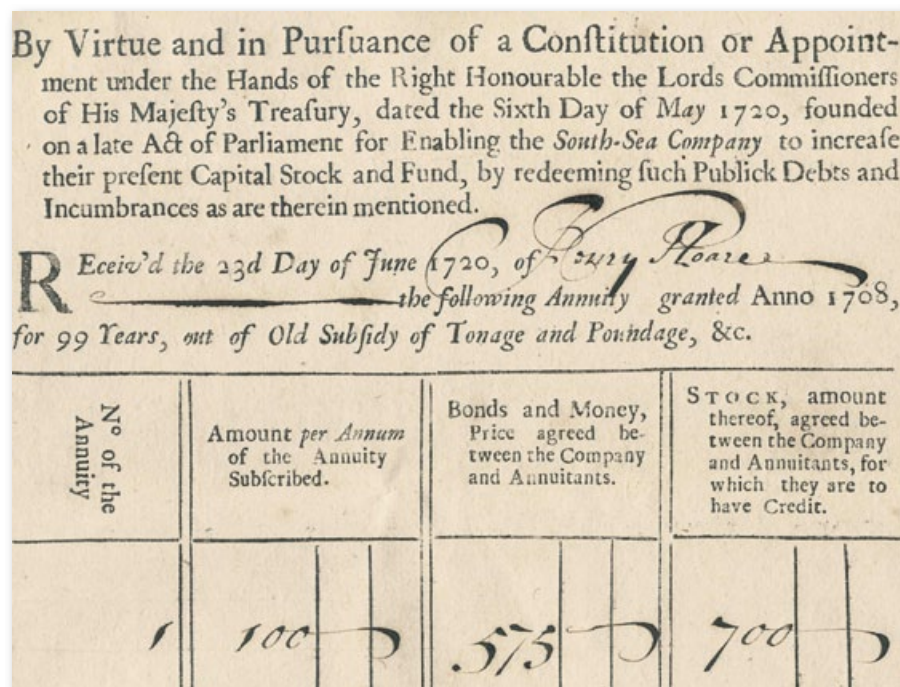 By Virtue and in Purſuance of a Conſtitution or Appoint-
ment under the Hands of the Right Honourable the Lords Commiſſioners
of His Majeſty's Treaſury, dated the Sixth Day of May 1720, founded
on a late Act of Parliament for Enabling the South-Sea Company to increaſe
their preſent Capital Stock and Fund, by redeeming ſuch Publick Debts and
Incumbrances as are therein mentioned.
REceiv'd the 23d Day of June 1720, of Henry Hoare
the following Annuity granted Anno 1708,
for 99 Years, out of Old Subſidy of Tonage and Poundage, &c.
No of the
Annuity
Amount per Annum
of the Annuity
Subſcribed.
Bonds and Money,
Price agreed be-
tween the Company
and Annuitants.
STOCK, amount
thereof, agreed be-
tween the Company
and Annuitants, for
which they are to
have Credit.
1 100 575 700